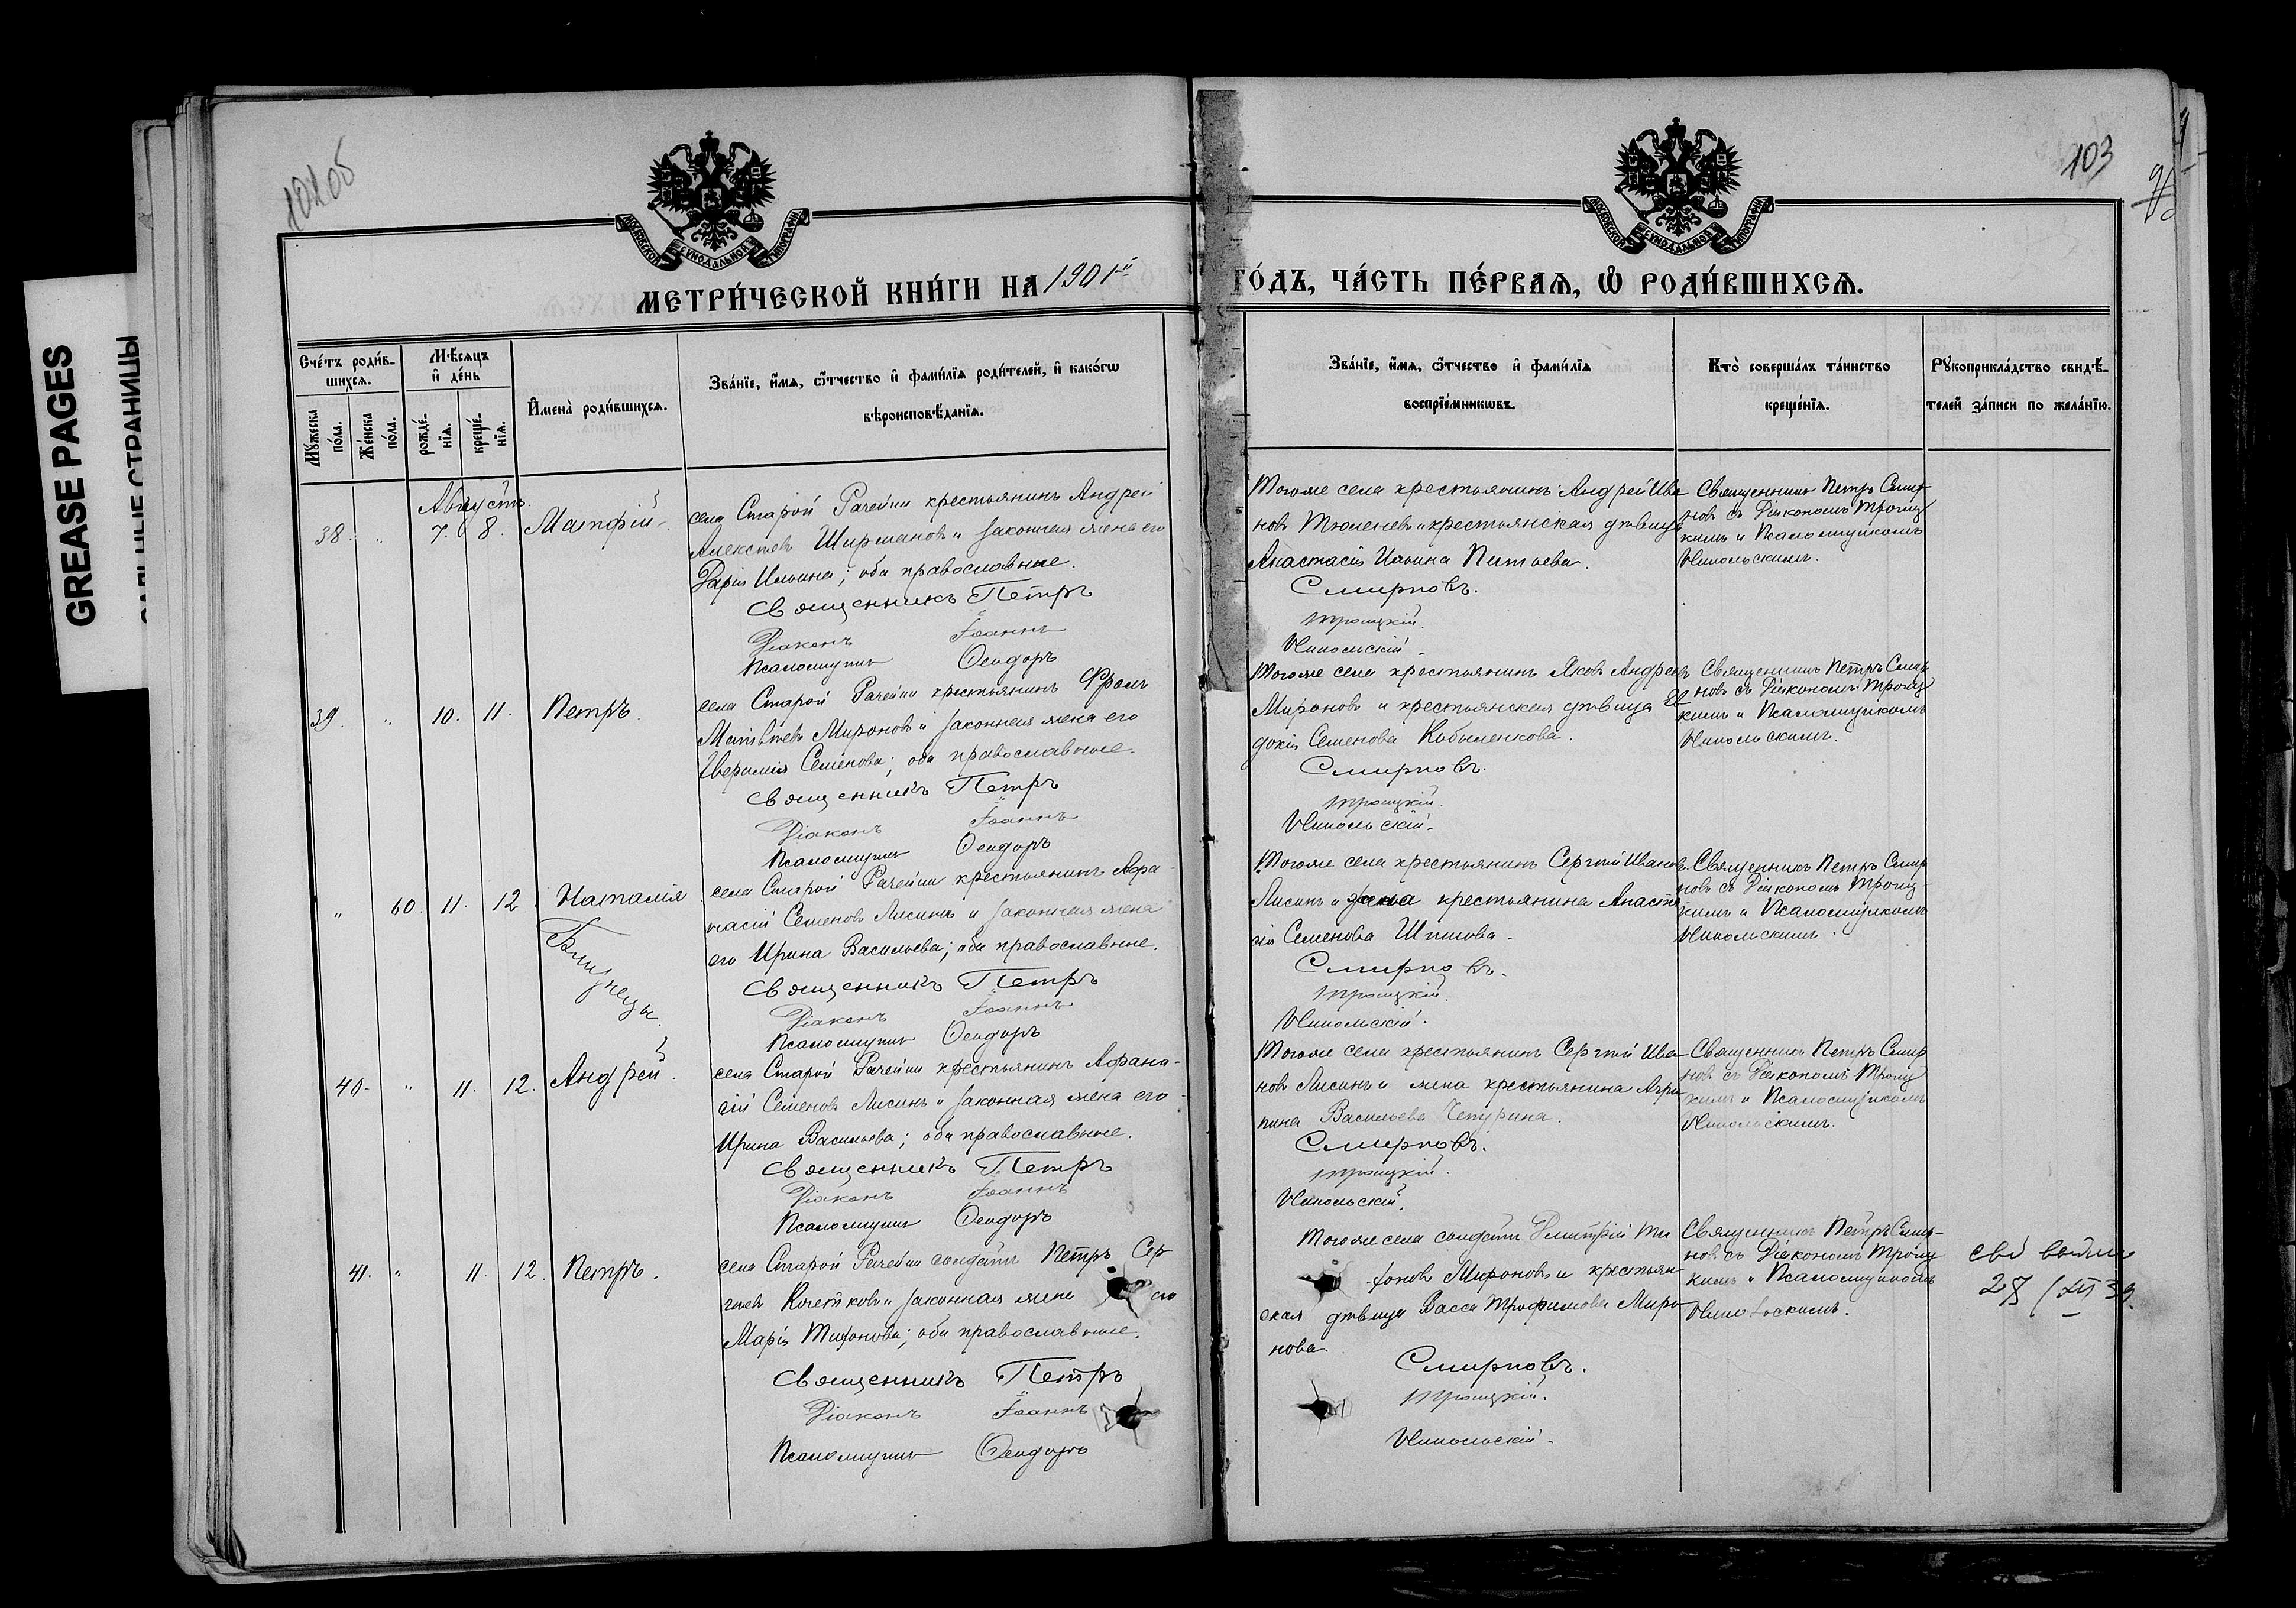 GREASE PAGES
102об
103
МОСКОВСКОЙ СУНОДАЛЬНОЙ ТИПОГРАФІИ
МОСКОВСКОЙ СУНОДАЛЬНОЙ ТИПОГРАФІИ
МЕТРИ́ЧЕСКОЙ КНИ́ГИ НА 1901й
ГО́ДЪ, ЧА́СТЬ ПЕ́РВАѦ, Ѡ҆ РОДИ́ВШИХСѦ.
Сче́тъ роди́в-
шихсѧ.
Мꙋ́жеска по́ла.
Же́нска по́ла.
Мѣ́сѧцъ
и҆ де́нь
рожде́-
нїѧ.
креще́-
нїѧ.
И҆мена̀ роди́вшихсѧ.
Зва́нїе, и҆́мѧ, ѻ҆́тчество и҆ фами́лїѧ роди́телей, и҆ како́гѡ
вѣроисповѣ́данїѧ.
Зва́нїе, и҆́мѧ, ѻ҆́тчество и҆ фами́лїѧ
воспрїе́мникѡвъ.
Кто̀ соверша́лъ та́инство
креще́нїѧ.
Рꙋкоприкла́дство свидѣ́-
телей за́писи по жела́нїю.
Августъ
38. " 7. 8. Матфій
села Старой Рачейки крестьянинъ Андрей
Алексѣевъ Ширмановъ и законная жена его
Дарія Ильина; оба православные.
Священникъ Петръ
Діаконъ Іоаннъ
Псаломщикъ Ѳеодоръ
Тогоже села крестьянинъ Андрей Ива
новъ Тюленевъ и крестьянская дѣвица
Анастасія Ильина Питаева.
Смирновъ.
Троицкій.
Никольскій.
Священникъ Петръ Смир-
новъ съ Діакономъ Троиц
кимъ и Псаломщикомъ
Никольскимъ.
39. " 10. 11. Петръ.
села Старой Рачейки крестьянинъ Фролъ
Матвѣевъ Мироновъ и законная жена его
Евфимія Семенова; оба православные.
Священникъ Петръ
Діаконъ Іоаннъ
Псаломщикъ Ѳеодоръ
Тогоже села крестьянинъ Яковъ Андреевъ
Мироновъ и крестьянская дѣвица Ев
докія Семенова Кобыленкова.
Смирновъ.
Троицкій.
Никольскій.
Священникъ Петръ Смир-
новъ съ Діакономъ Троиц
кимъ и Псаломщикомъ
Никольскимъ.
" 60. 11. 12. Наталія
Близнецы.
села Старой Рачейки крестьянинъ Афа-
насій Семеновъ Лисинъ и законная жена
его Ирина Васильева; оба православные.
Священникъ Петръ
Діаконъ Іоаннъ
Псаломщикъ Ѳеодоръ
Тогоже села крестьянинъ Сергѣй Ивановъ
Лисинъ и жена крестьянина Анаста
сія Семенова Шишова.
Смирновъ.
Троицкій.
Никольскій.
Священникъ Петръ Смир
новъ съ Діакономъ Троиц-
кимъ и Псаломщикомъ
Никольскимъ.
40. " 11. 12. Андрей.
села Старой Рачейки крестьянинъ Афана-
сій Семеновъ Лисинъ и законная жена его
Ирина Васильева; оба православные.
Священникъ Петръ
Діаконъ Іоаннъ
Псаломщикъ Ѳеодоръ
Тогоже села крестьянинъ Сергѣй Ива
новъ Лисинъ и жена крестьянина Агрип
пина Васильева Чепурина.
Смирновъ.
Троицкій.
Никольскій.
Священникъ Петръ Смир
новъ съ Діакономъ Троиц
кимъ и Псаломщикомъ
Никольскимъ.
41. " 11. 12. Петръ.
села Старой Рачейки солдатъ Петръ Сер
гѣевъ Кочетковъ и законная жена его
Марія Тихонова; оба православные.
Священникъ Петръ
Діаконъ Іоаннъ
Псаломщикъ Ѳеодоръ
Тогоже села солдатъ Дмитрій Ти
хоновъ Мироновъ и крестьян
ская дѣвица Васса Трофимова Миро
нова.
Смирновъ.
Троицкій.
Никольскій.
Священникъ Петръ Смир-
новъ съ Діакономъ Троиц
кимъ и Псаломщикомъ
Никольскимъ.
28/XII 39.